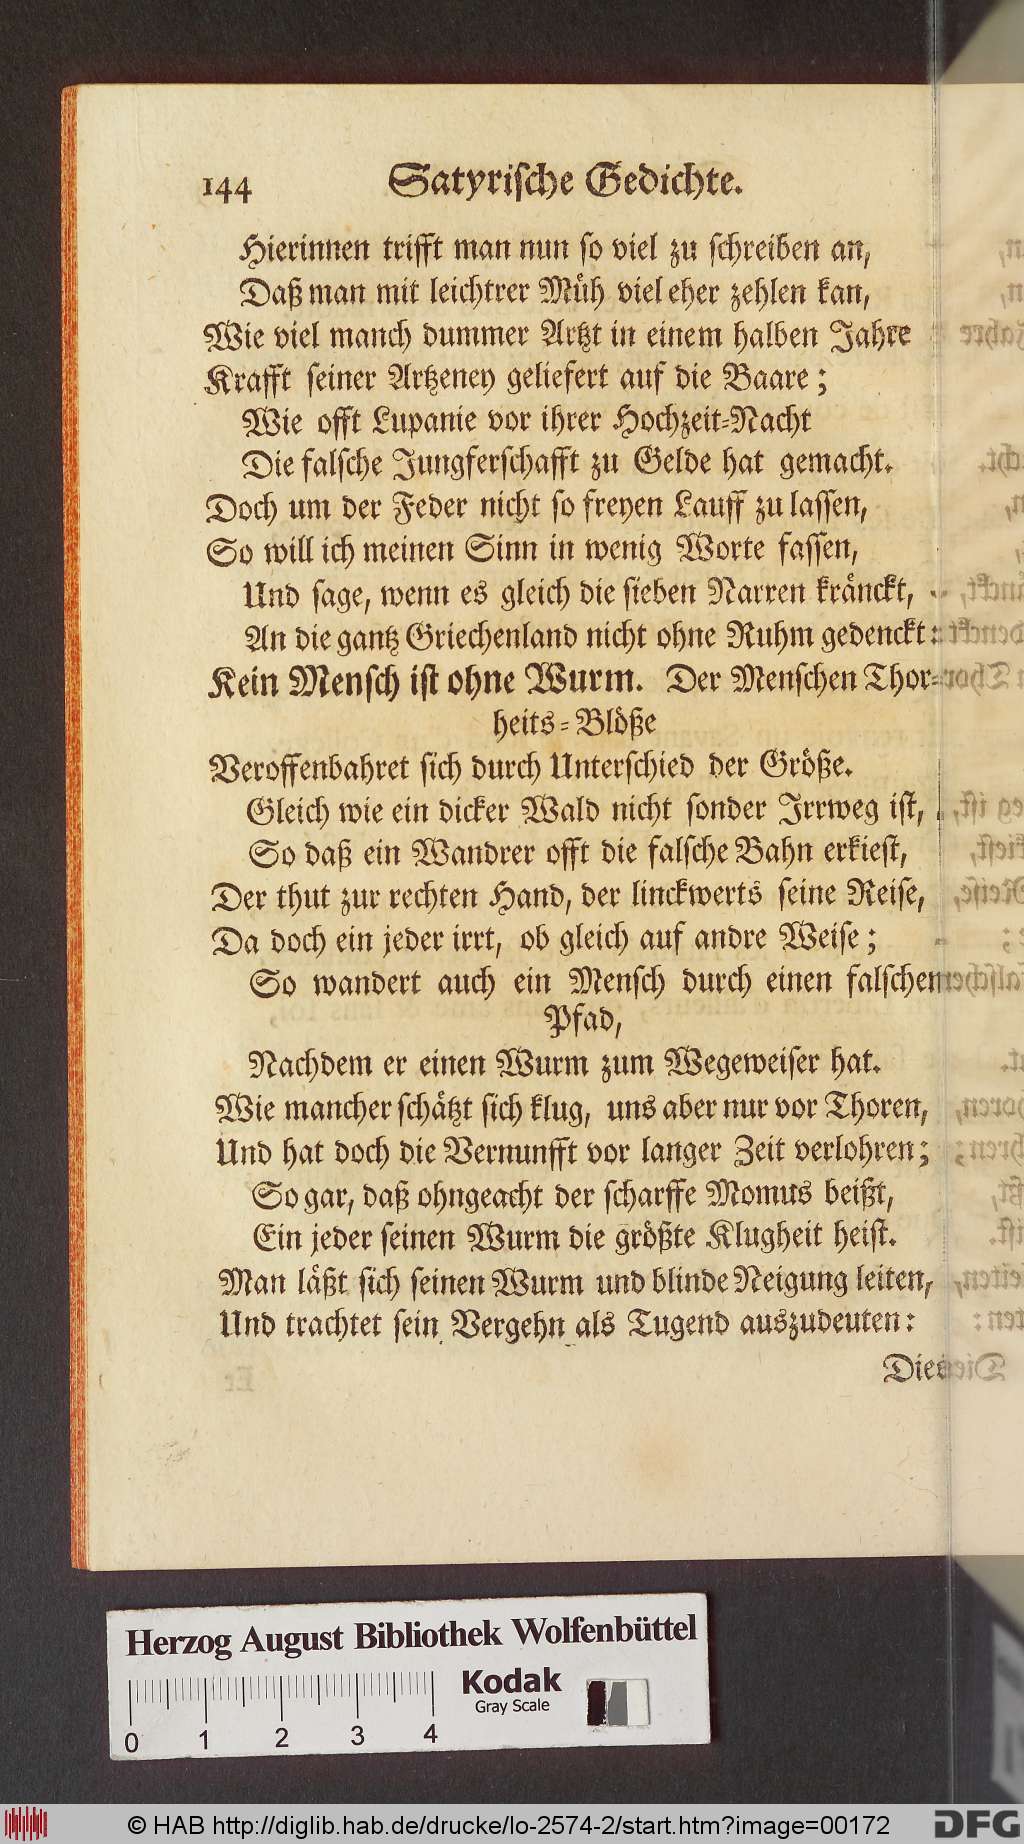 144 Satyrische Gedichte.
Hierinnen trifft man nun so viel zu schreiben an,
Daß man mit leichtrer Müh viel eher zehlen kan,
Wie viel manch dummer Artzt in einem halben Jahre
Krafft seiner Artzeney geliefert auf die Baare;
Wie offt Lupanie vor ihrer Hochzeit-Nacht
Die falsche Jungferschafft zu Gelde hat gemacht.
Doch um der Feder nicht so freyen Lauff zu lassen,
So will ich meinen Sinn in wenig Worte fassen,
Und sage, wenn es gleich die sieben Narren kränckt,
An die gantz Griechenland nicht ohne Ruhm gedenckt:
Kein Mensch ist ohne Wurm. Der Menschen Thor-
heits-Blöße
Veroffenbahret sich durch Unterschied der Größe.
Gleich wie ein dicker Wald nicht sonder Irrweg ist,
So daß ein Wandrer offt die falsche Bahn erkiest,
Der thut zur rechten Hand, der linckwerts seine Reise,
Da doch ein jeder irrt, ob gleich auf andre Weise;
So wandert auch ein Mensch durch einen falschen
Pfad,
Nachdem er einen Wurm zum Wegeweiser hat.
Wie mancher schätzt sich klug, uns aber nur vor Thoren,
Und hat doch die Vernunfft vor langer Zeit verlohren;
So gar, daß ohngeacht der scharffe Momus beißt,
Ein jeder seinen Wurm die größte Klugheit heist.
Man läßt sich seinen Wurm und blinde Neigung leiten,
Und trachtet sein Vergehn als Tugend auszudeuten:
Herzog August Bibliothek Wolfenbüttel
Kodak
Gray Scale
0 1 2 3 4
© HAB http://diglib.hab.de/drucke/lo-2574-2/start.htm?image=00172
DFG